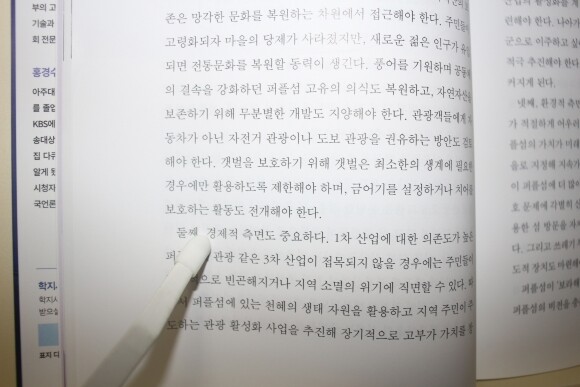 부의 고
기술과
회 전문
홍경수
아주대
를 졸업
KBS에
송대상
집 다큐
알게 됐
시청자
국언론
학지사
학지시
받으실
표지 디
존은 망각한 문화를 복원하는 차원에서 접근해야 한다. 주민들이
고령화되자 마을의 당제가 사라졌지만, 새로운 젊은 인구가 유입
되면 전통문화를 복원할 동력이 생긴다. 풍어를 기원하며 공동체
의 결속을 강화하던 퍼플섬 고유의 의식도 복원하고, 자연자산을
보존하기 위해 무분별한 개발도 지양해야 한다. 관광객들에게 자
동차가 아닌 자전거 관광이나 도보 관광을 권유하는 방안도 검토
해야 한다. 갯벌을 보호하기 위해 갯벌은 최소한의 생계에 필요한
경우에만 활용하도록 제한해야 하며, 금어기를 설정하거나 치어를
보호하는 활동도 전개해야 한다.
둘째, 경제적 측면도 중요하다. 1차 산업에 대한 의존도가 높은
관광 같은 3차 산업이 접목되지 않을 경우에는 주민들이
으로 빈곤해지거나 지역 소멸의 위기에 직면할 수 있다.
서 퍼플섬에 있는 천혜의 생태 자원을 활용하고 지역 주민이 주
도하는 관광 활성화 사업을 추진해 장기적으로 고부가 가치를 창
련해야 한다. 나아가
군으로 이주하고 싶
적극 추진해야 한다.
커지게 된다.
넷째, 환경적 측면
가 적절하게 어우러
퍼플섬의 가치가 미래
울로 지정해 지속가
이 퍼플섬에 더 많이
호 문제에 각별히 신
용한 섬 방문을 자제
다. 그리고 쓰레기
도적 장치도 마련해
퍼플섬이 '보라해
퍼플섬의 비전을 중